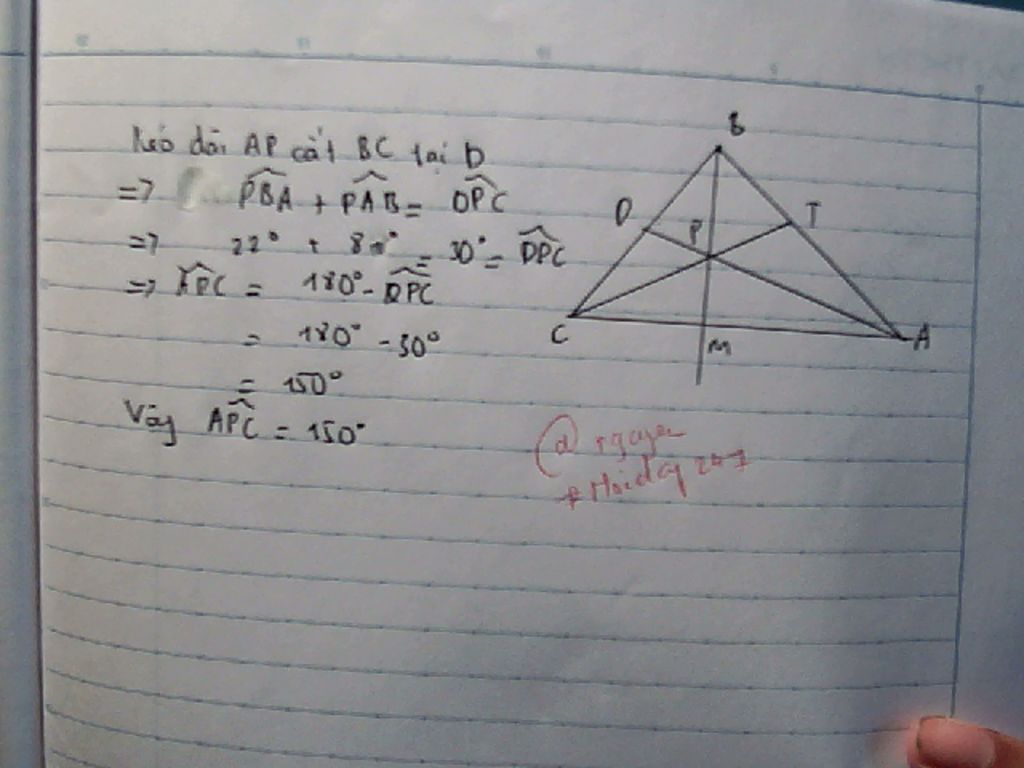 Kéo dài AP cắt BC tại D
=> PBA + PAB = DPC
=> 22° + 8° = 30° = DPC
=> APC = 180° - DPC
= 180° - 30°
= 150°
Vậy APC = 150°
B
D
P
T
C
M
A
@ nguyen
+ Hoidap 247